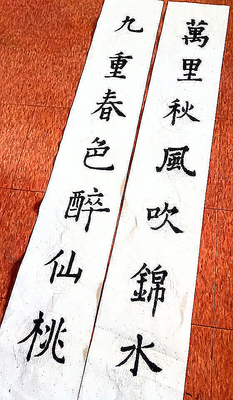 萬里秋風吹錦水
九重春色醉仙桃